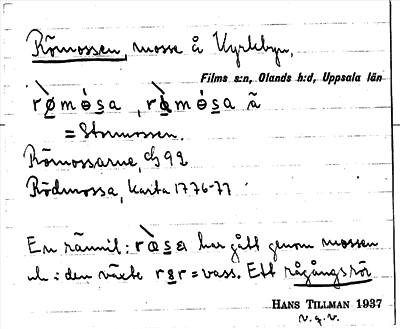 Römossen, mosse å Kyrkebyn,
Films s:n, Olands h:d, Uppsala län
= Stormossen.
Römossarne, 92
Rödmossa, Karta 1776-77
En rännil: har gått genom mossen
o. i den växte = vass. Ett rågångsrör
HANS TILLMAN 1937
v.g.v.